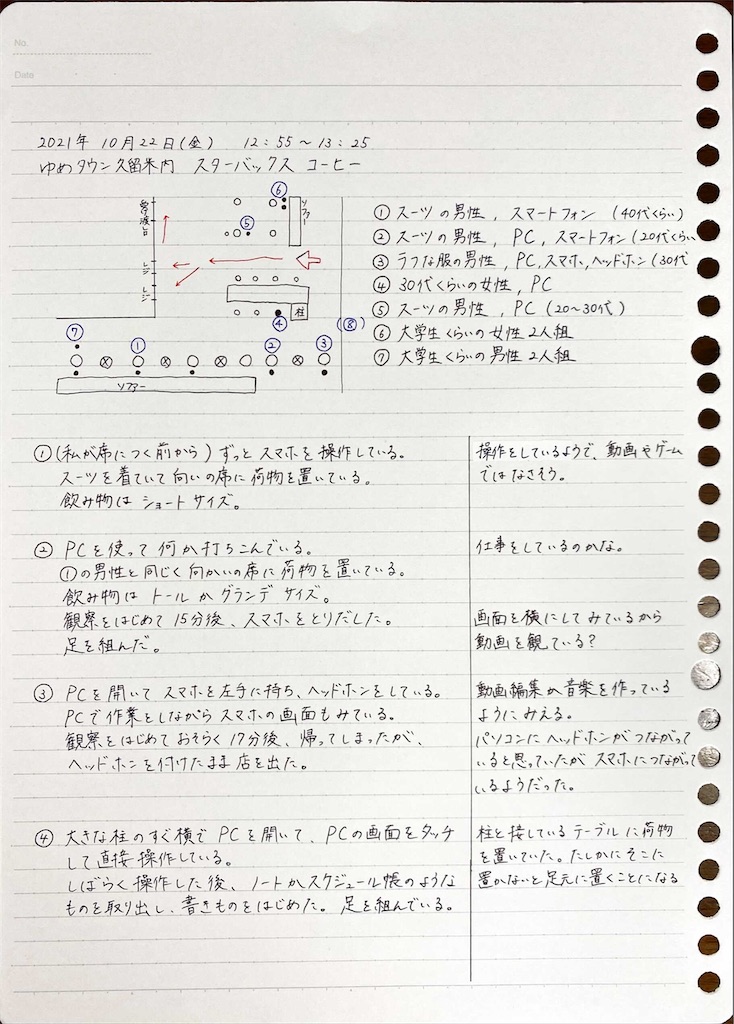 No.
Date
2021年 10月22日(金) 12:55〜13:25
ゆめタウン久留米内 スターバックス コーヒー
受け渡し口
レジ
レジ
ソファー
柱
ソファー
⑥
⑤
④
⑦
①
②
③
(⑧)
① スーツの男性, スマートフォン (40代くらい)
② スーツの男性, PC, スマートフォン(20代くらい
③ ラフな服の男性, PC,スマホ,ヘッドホン(30代
④ 30代くらいの女性, PC
⑤ スーツの男性, PC (20〜30代)
⑥ 大学生くらいの女性2人組
⑦ 大学生くらいの男性2人組
① (私が席につく前から) ずっとスマホを操作している。
スーツを着ていて向いの席に荷物を置いている。
飲み物は ショートサイズ。
操作をしているようで、動画やゲーム
ではなさそう。
② PCを使って何か打ちこんでいる。
①の男性と同じく向かいの席に荷物を置いている。
飲み物は トールか グランデ サイズ。
観察をはじめて15分後、スマホをとりだした。
足を組んだ。
仕事をしているのかな。
画面を横にしてみているから
動画を観ている?
③ PCを開いてスマホを左手に持ち、ヘッドホンをしている。
PCで作業をしながらスマホの画面もみている。
観察をはじめておそらく17分後、帰ってしまったが、
ヘッドホンを付けたまま店を出た。
動画編集か音楽を作っている
ようにみえる。
パソコンにヘッドホンがつながって
いると思っていたがスマホにつながって
いるようだった。
④ 大きな柱のすぐ横でPCを開いて、PCの画面をタッチ
して直接操作している。
しばらく操作した後、ノートかスケジュール帳のような
ものを取り出し、書きものをはじめた。 足を組んでいる。
柱と接しているテーブルに荷物
を置いていた。たしかにそこに
置かないと足元に置くことになる